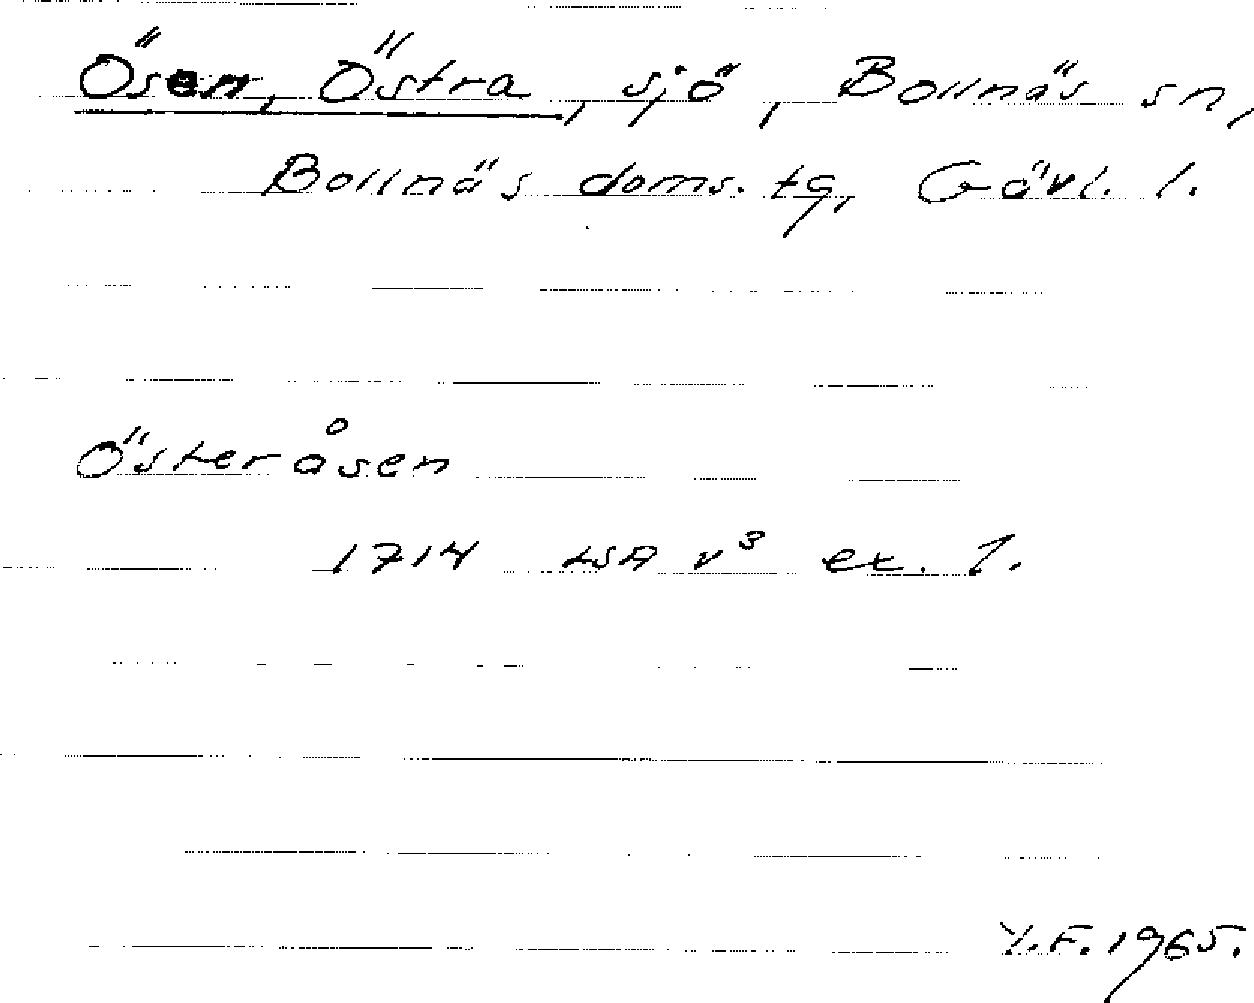 Ösen, Östra, sjö, Bollnäs sn,
Bollnäs doms. tg, Gävl. l.
Österåsen
1714 LSA v³ ex. 1.
Y.F. 1965.